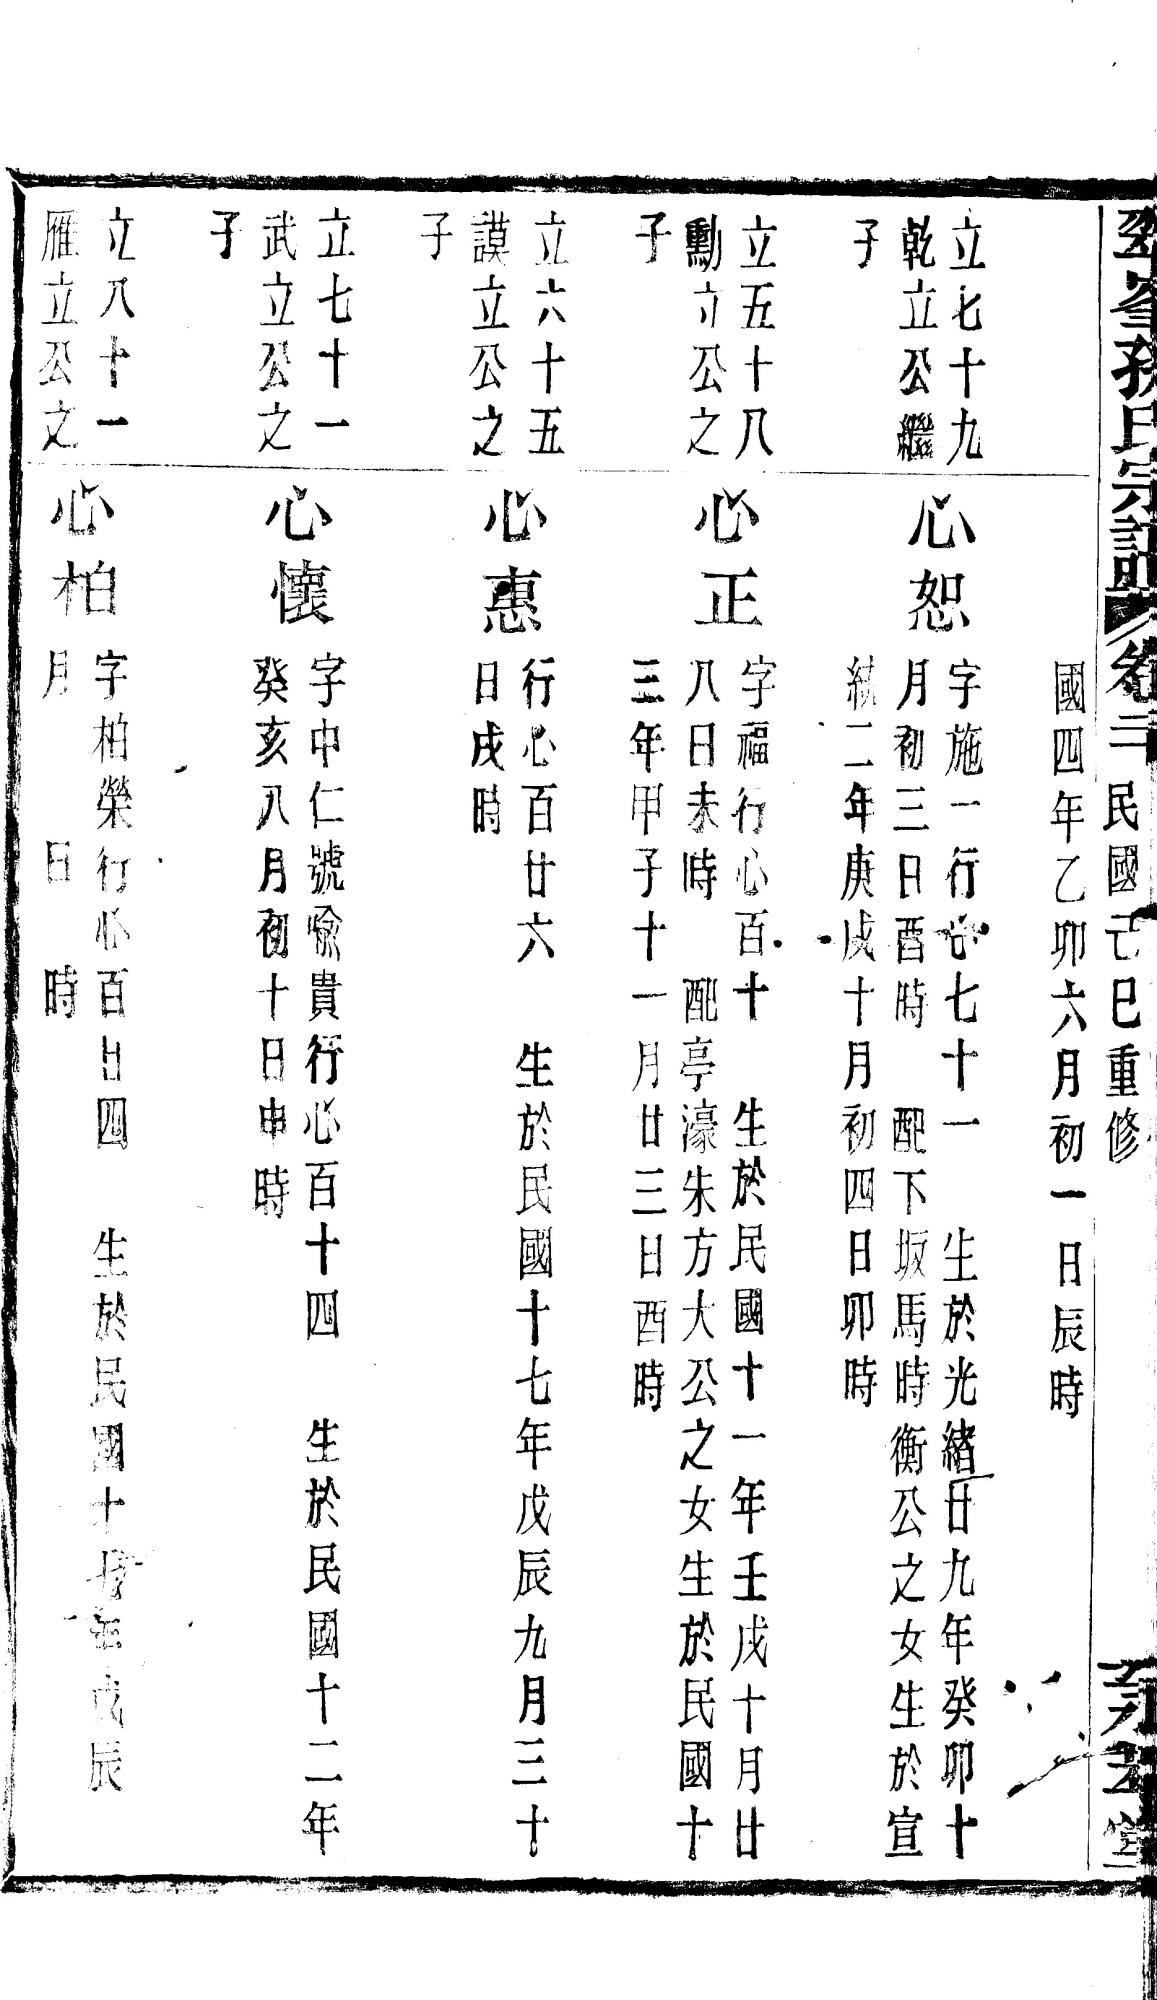 峯孫氏宗譜卷二 民國己巳重修
堂
國四年乙卯六月初一日辰時
立七十九
乾立公繼
子
心恕
字施一行心七十一 生於光緒廿九年癸卯十
月初三日酉時 配下坂馬時衡公之女生於宣
統二年庚戌十月初四日卯時
立五十八
勳立公之
子
心正
字福行心百十 生於民國十一年壬戌十月廿
八日未時 配亭濠朱方大公之女生於民國十
三年甲子十一月廿三日酉時
立六十五
謨立公之
子
心惠
行心百廿六 生於民國十七年戊辰九月三十
日戌時
立七十一
武立公之
子
心懷
字中仁號喻貴行心百十四 生於民國十二年
癸亥八月初十日申時
立八十一
雁立公之
心柏
字柏榮行心百廿四 生於民國十七年戊辰
月 日 時